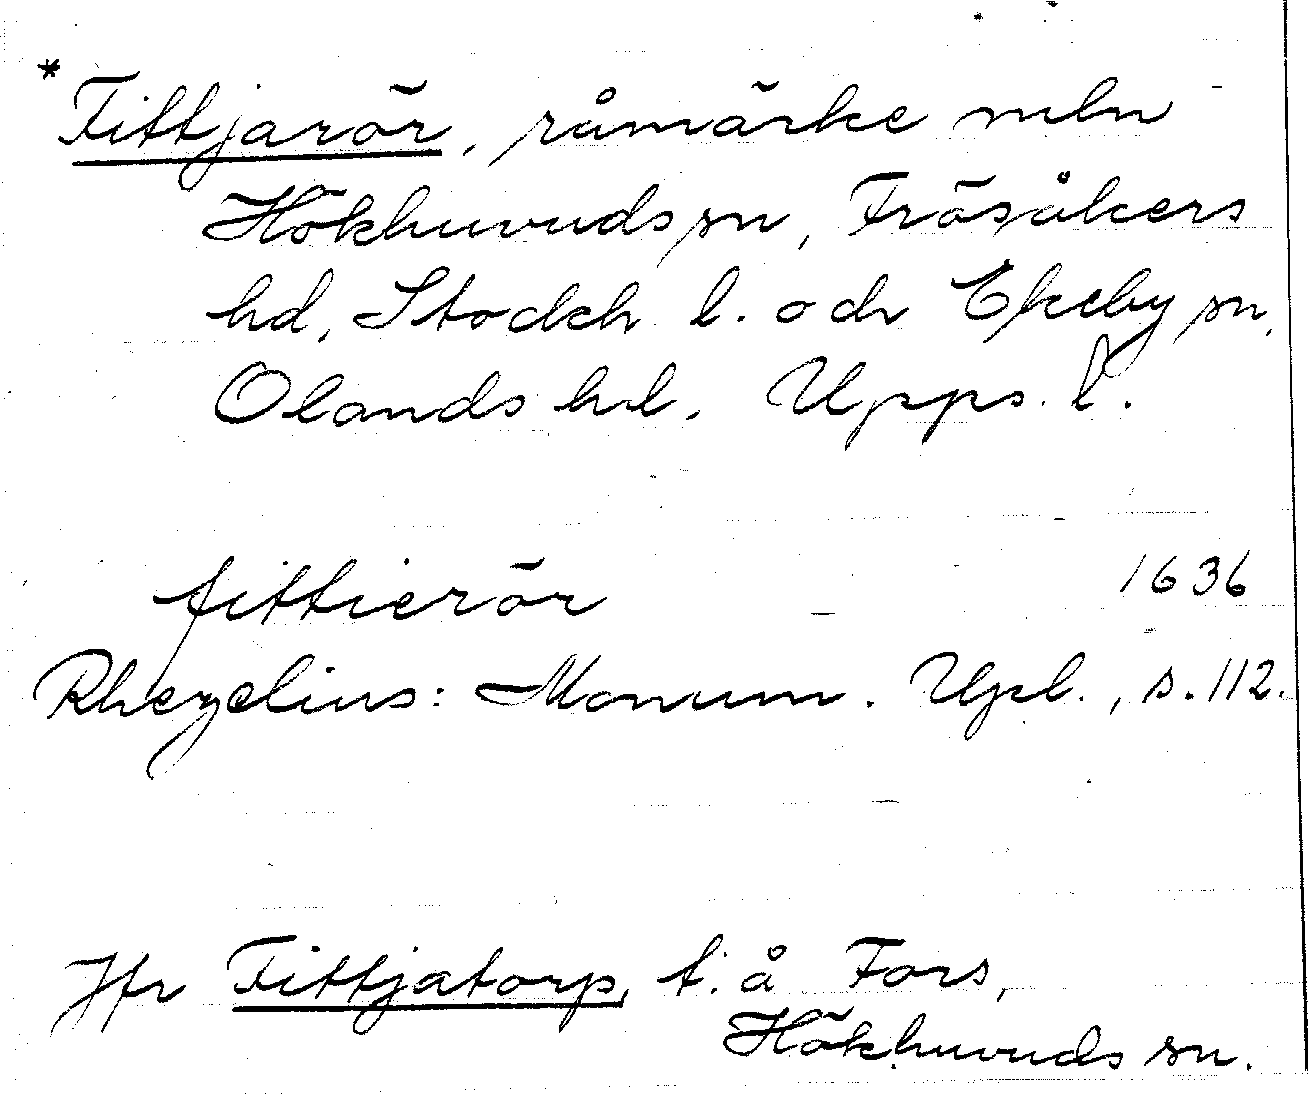 *Fittjarör, råmärke mln
Hökhuvuds sn, Frösåkers
hd, Stockh. l. och Ekeby sn,
Olands hd, Upps. l.
fittierör 1636
Rhezelius: Monum. Upl., s. 112.
Jfr Fittjatorp, t. å Fors,
Hökhuvuds sn.